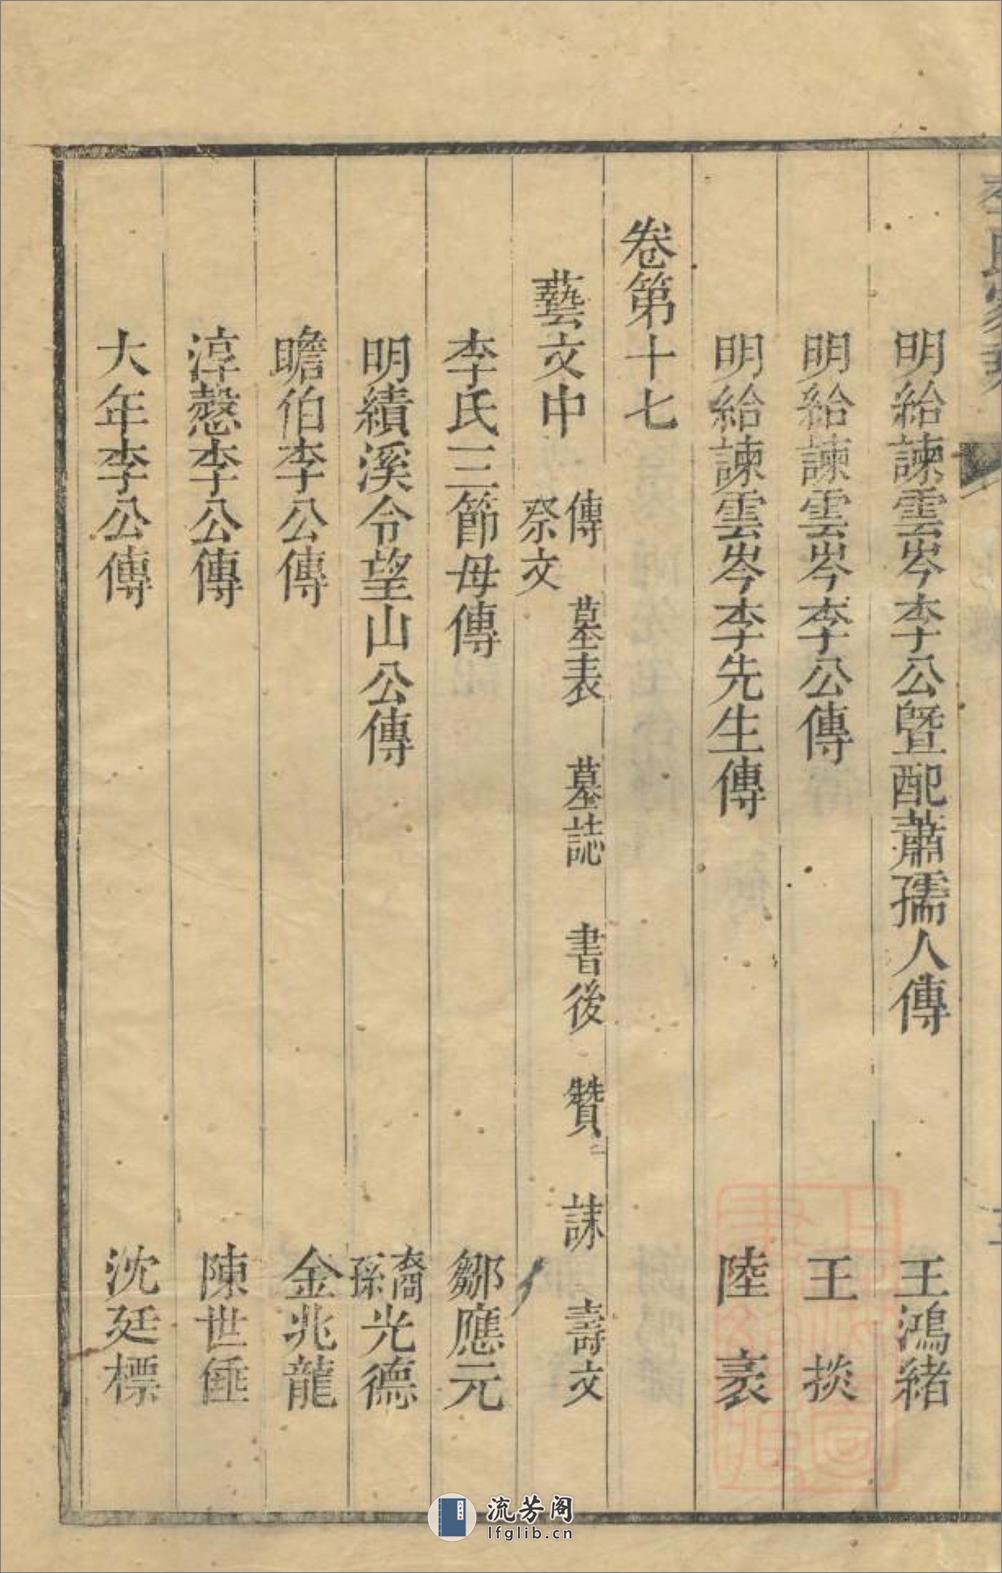 李氏家乘
明給諫雲岑李公暨配蕭孺人傳 王鴻緒
明給諫雲岑李公傳 王掞
明給諫雲岑李先生傳 陸袠
卷第十七
藝文中 傳 墓表 墓誌 書後 贊 誄 壽文 祭文
李氏三節母傳 鄒應元
明績溪令望山公傳 裔孫光德
瞻伯李公傳 金兆龍
淳慤李公傳 陳世倕
大年李公傳 沈廷標
流芳阁
lfglib.cn